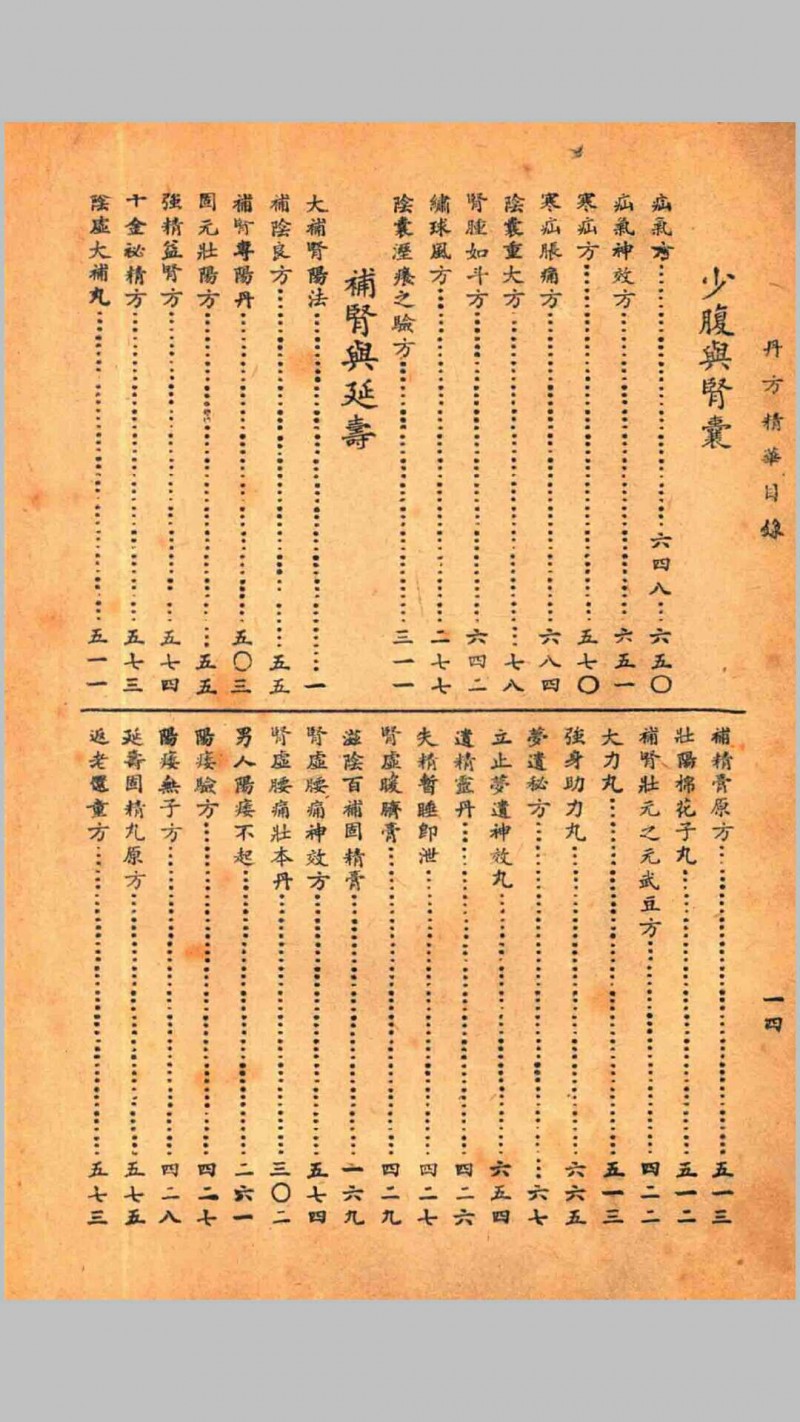 丹方精華目錄
一四
少腹與腎囊
疝氣方……六四八…六五〇
疝氣神效方……六五一
寒疝方……五七〇
寒疝脹痛方……六八四
陰囊重大方……七八
腎腫如斗方……六四二
繡球風方……二七七
陰囊溼癢之驗方……三一一
補腎與延壽
大補腎陽法……一
補陰良方……五五
補腎專陽丹……五〇三
固元壯陽方……五五
強精益腎方……五七四
千金祕精方……五七三
陰虛大補丸……五一一
補精膏原方……五一三
壯陽棉花子丸……五一二
補腎壯元之元武豆方……四二二
大力丸……五一三
強身助力丸……六六五
夢遺秘方……六七
立止夢遺神效丸……六五四
遺精靈丹……四二六
失精暫睡卽泄……四二七
腎虛暖臍膏……四二九
滋陰百補固精膏……一六九
腎虛腰痛神效方……五七四
腎虛腰痛壯本丹……三〇二
男人陽痿不起……二六一
陽痿驗方……四二七
陽痿無子方……四二八
延壽固精丸原方……五七五
返老還童方……五七三